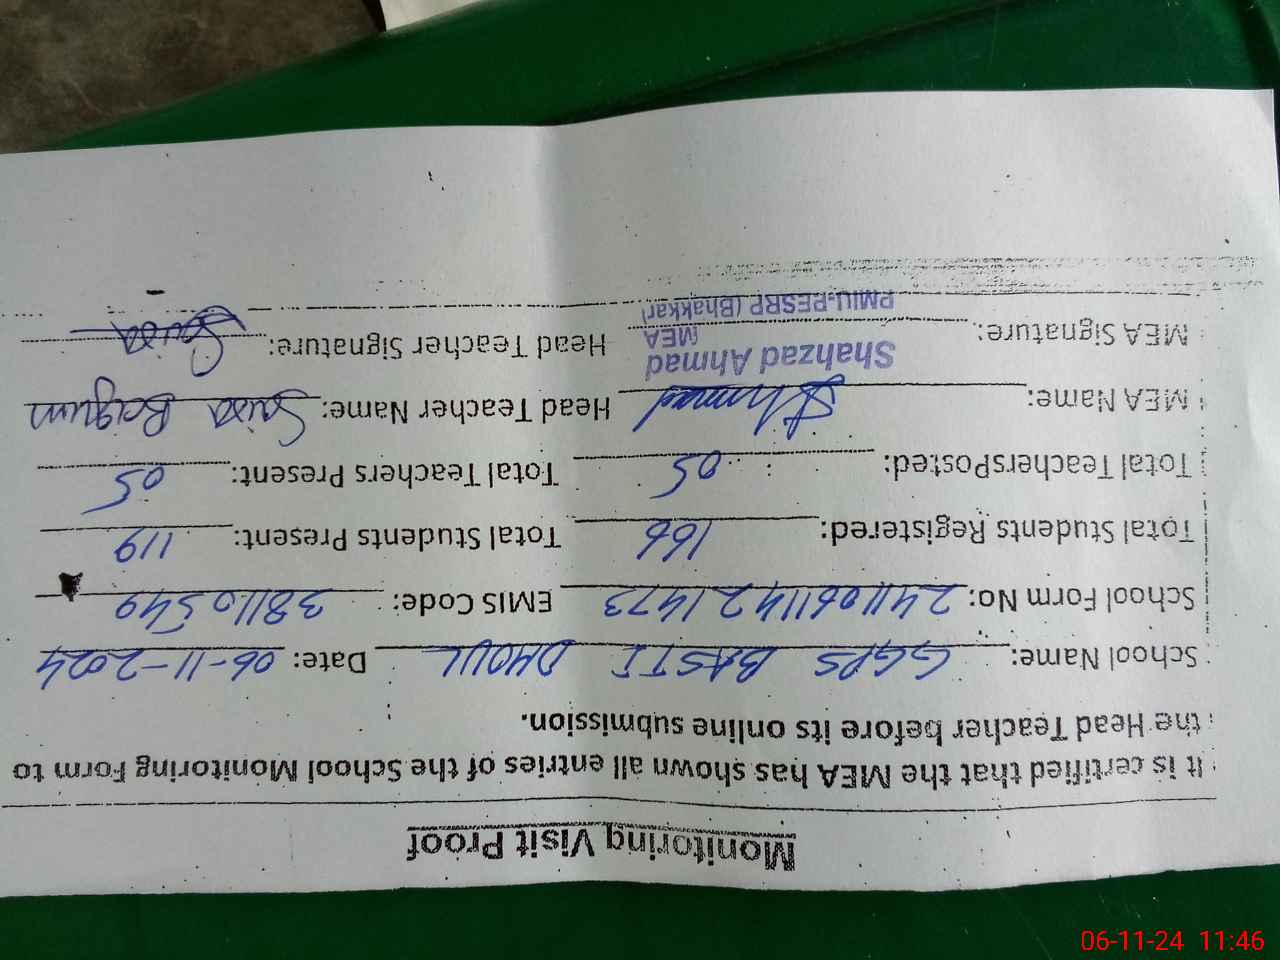 Monitoring Visit Proof
It is certified that the MEA has shown all entries of the School Monitoring Form to
the Head Teacher before its online submission.
School Name: GGPS BASTI DHOUL Date: 06-11-2024
School Form No: 2411061142 1473 EMIS Code: 38110549
Total Students Registered: 166 Total Students Present: 119
Total TeachersPosted: 05 Total Teachers Present: 05
MEA Name: Ahmad Head Teacher Name: Saira Begum
Shahzad Ahmad
MEA Signature: MEA Head Teacher Signature: Saira
PMIU-PESRP (Bhakkar)
06-11-24 11:46